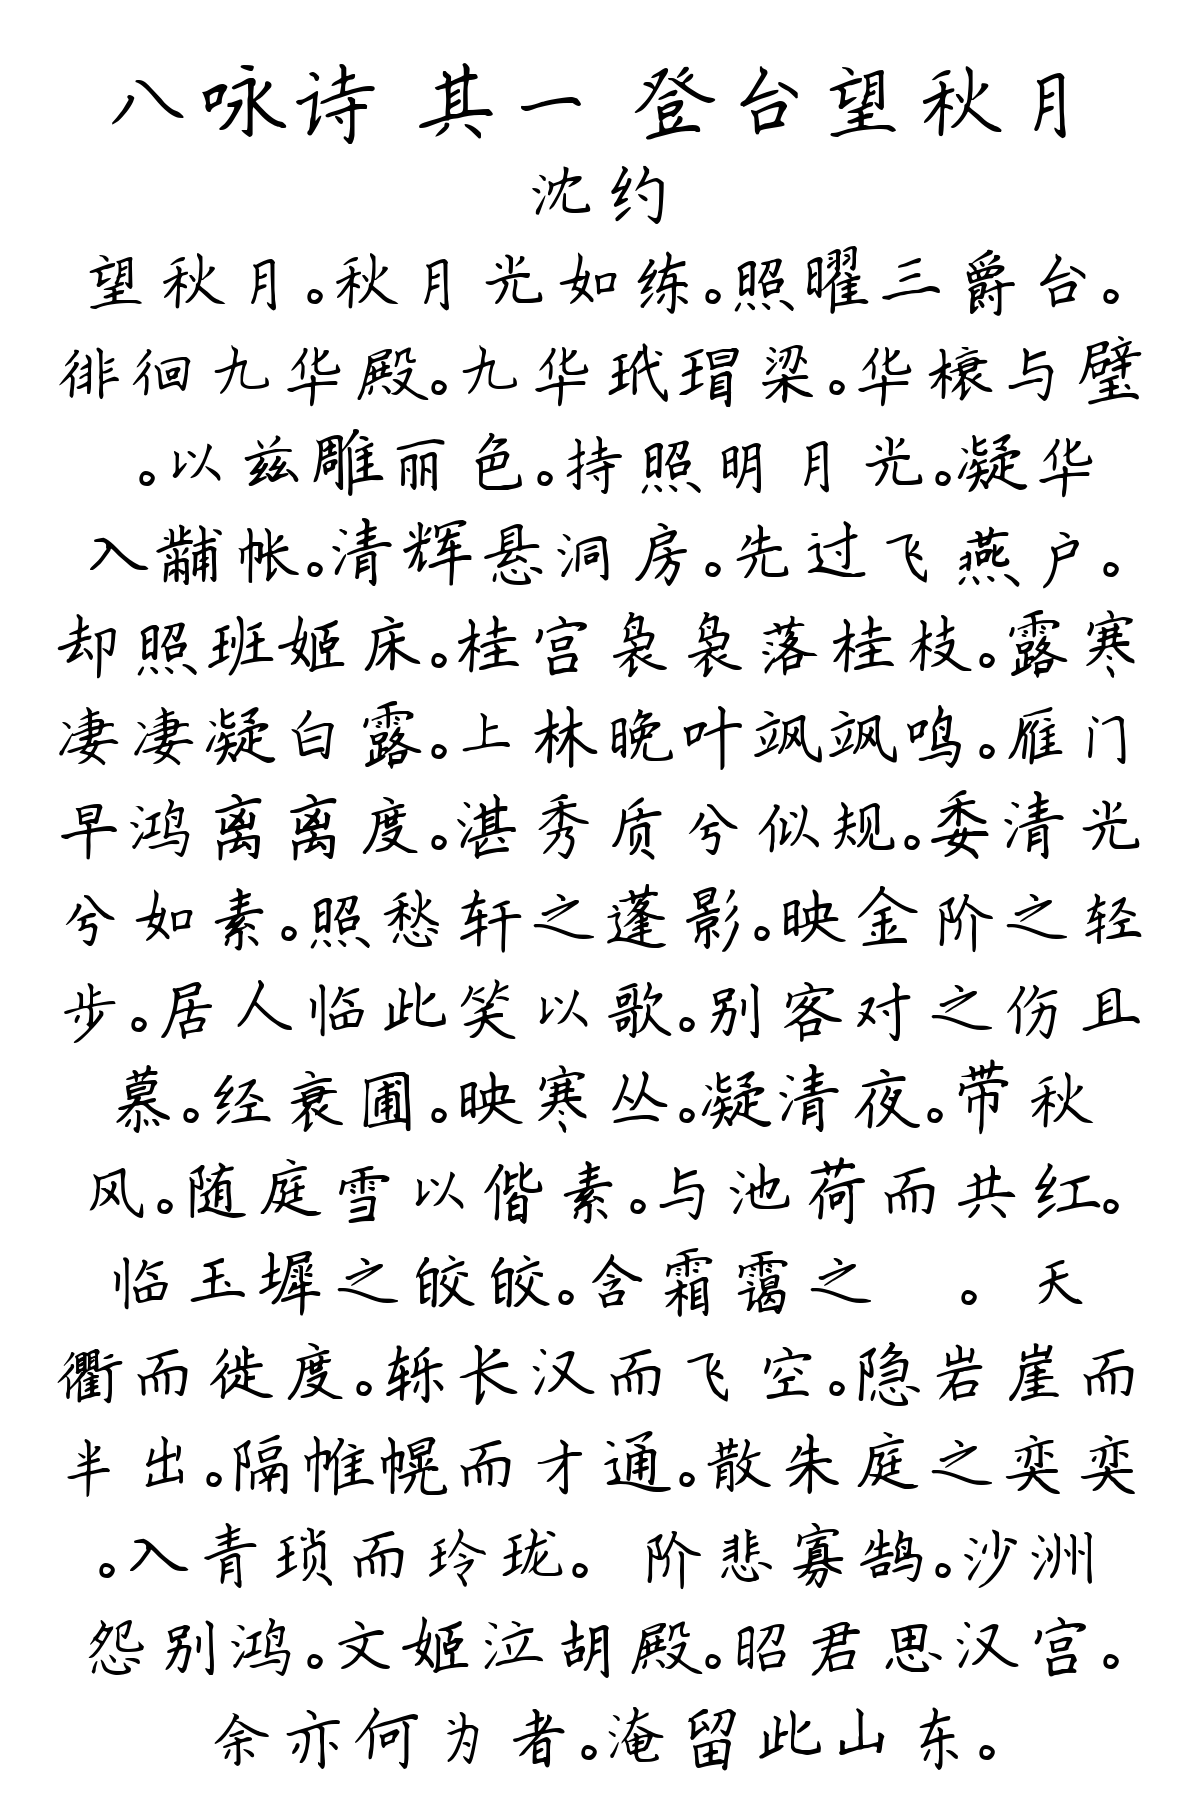 八咏诗 其一 登台望秋月
沈约
望秋月。秋月光如练。照曜三爵台。
徘徊九华殿。九华玳瑁梁。华榱与璧
。以兹雕丽色。持照明月光。凝华
入黼帐。清辉悬洞房。先过飞燕户。
却照班姬床。桂宫袅袅落桂枝。露寒
凄凄凝白露。上林晚叶飒飒鸣。雁门
早鸿离离度。湛秀质兮似规。委清光
兮如素。照愁轩之蓬影。映金阶之轻
步。居人临此笑以歌。别客对之伤且
慕。经衰圃。映寒丛。凝清夜。带秋
风。随庭雪以偕素。与池荷而共红。
临玉墀之皎皎。含霜霭之 。天
衢而徙度。轹长汉而飞空。隐岩崖而
半出。隔帷幌而才通。散朱庭之奕奕
。入青琐而玲珑。 阶悲寡鹄。沙洲
怨别鸿。文姬泣胡殿。昭君思汉宫。
余亦何为者。淹留此山东。